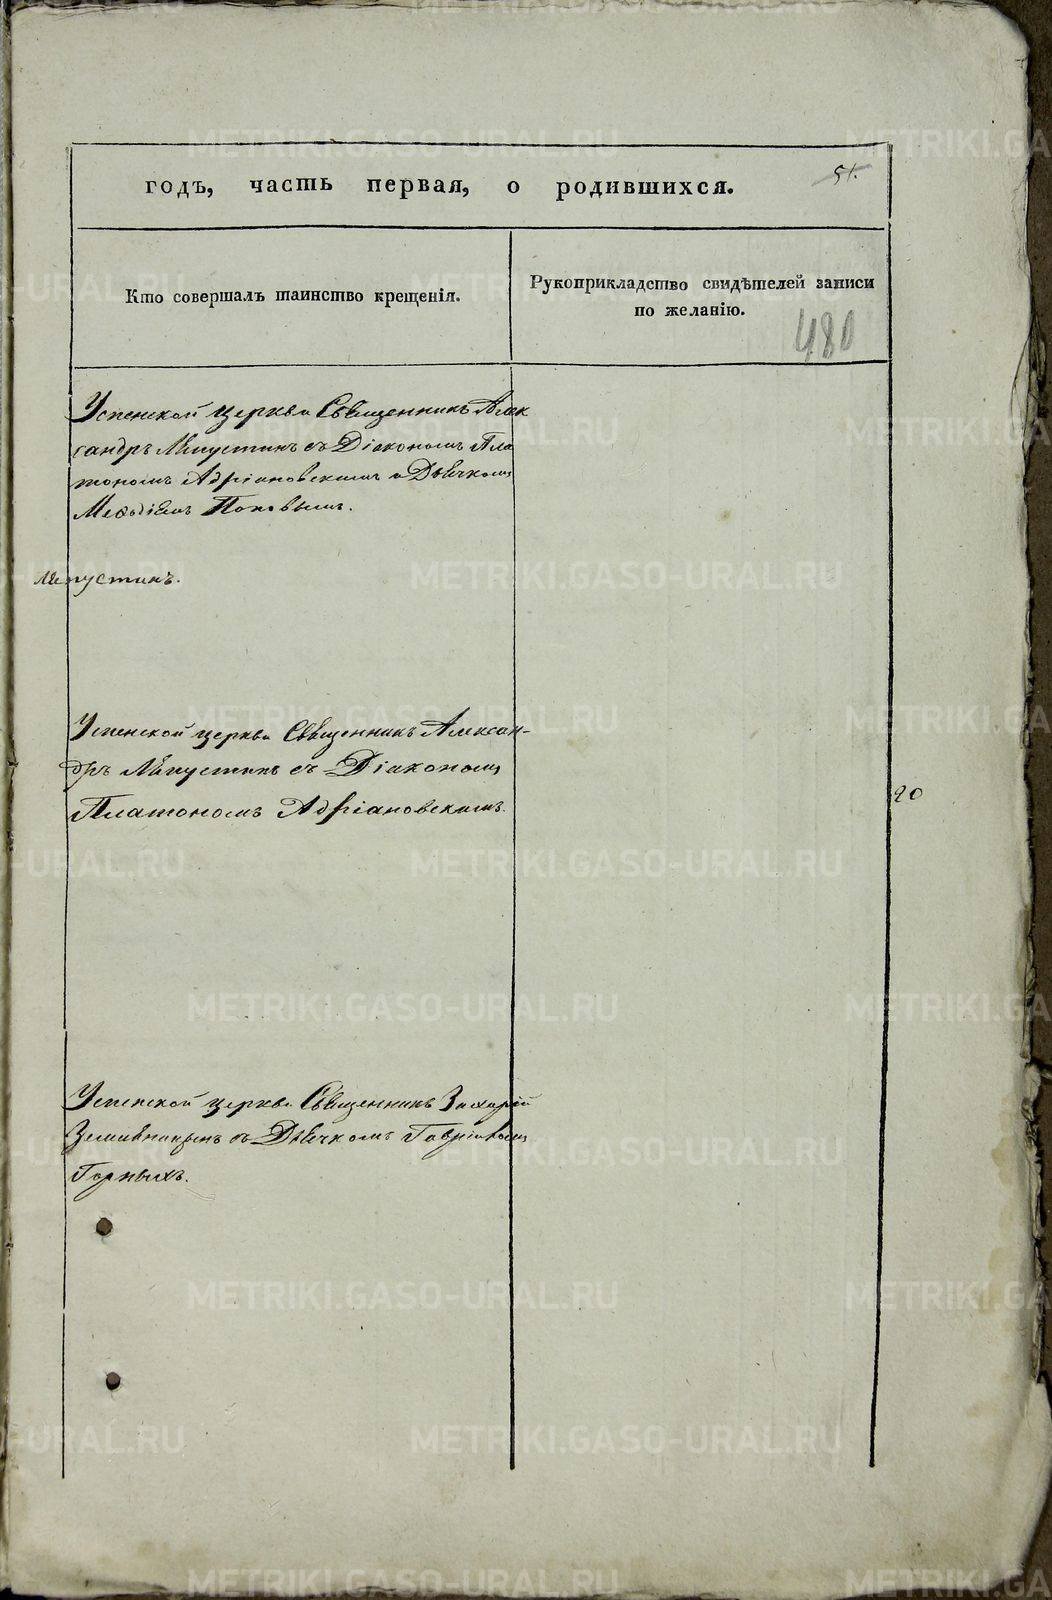 годъ, часть первая, о родившихся.
51.
Кто совершалъ таинство крещенія.
Рукоприкладство свидѣтелей записи
по желанію.
480
Успенской церкви Священникъ Алек
сандръ Ляпустинъ съ Діакономъ Пла
тономъ Адріановскимъ и Дьячкомъ
Меѳодіемъ Поповымъ.
Ляпустинъ.
Успенской церкви Священникъ Алексан-
дръ Ляпустинъ съ Діакономъ
Платономъ Адріановскимъ.
20
Успенской церкви Священникъ Захарій
Земляницынъ съ Дьячкомъ Гавріиломъ
Горныхъ.
METRIKI.GASO-URAL.RU